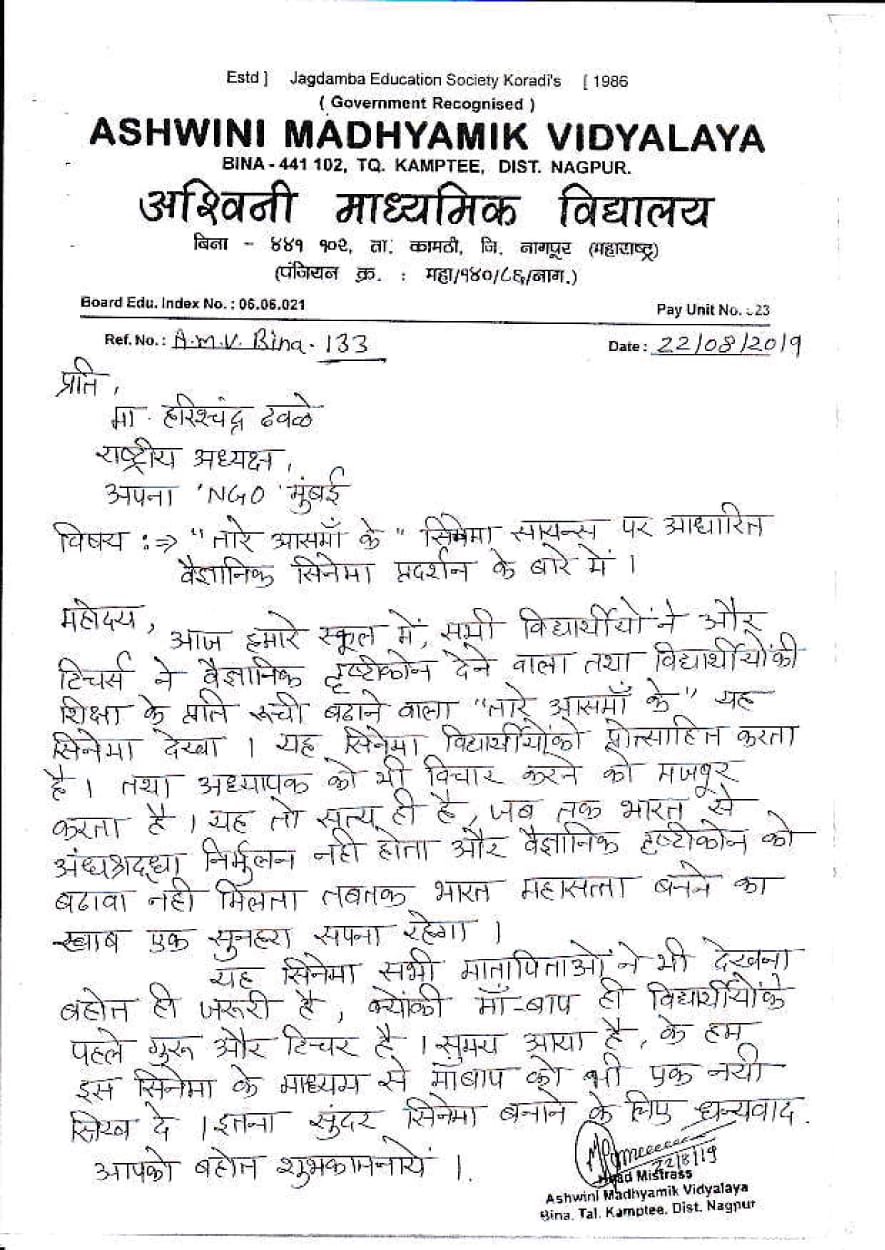 Estd ] Jagdamba Education Society Koradi's [ 1986
( Government Recognised )
ASHWINI MADHYAMIK VIDYALAYA
BINA - 441 102, TQ. KAMPTEE, DIST. NAGPUR.
अश्विनी माध्यमिक विद्यालय
बिना - ४४१ १०२, ता. कामठी, जि. नागपूर (महाराष्ट्र)
(पंजियन क्र. : महा/१४०/८६/नाग.)
Board Edu. Index No. : 06.06.021 Pay Unit No. : 23
Ref. No. : A.M.V. Bina - 133 Date : 22/08/2019
प्रति,
मा. हरिश्चंद्र ढवळे
राष्ट्रीय अध्यक्ष,
अपना 'NGO' मुंबई
विषय :⇒ "तारे आसमाँ के" सिनेमा सायन्स पर आधारित
वैज्ञानिक सिनेमा प्रदर्शन के बारे में ।
महोदय,
आज हमारे स्कूल में, सभी विद्यार्थीयों ने और
टिचर्स ने वैज्ञानिक दृष्टीकोन देने वाला तथा विद्यार्थीयोंकी
शिक्षा के प्रति रूची बढाने वाला "तारे आसमाँ के" यह
सिनेमा देखा । यह सिनेमा विद्यार्थीयोंको प्रोत्साहित करता
है । तथा अध्यापक को भी विचार करने को मजबूर
करता है । यह तो सत्य ही है, जब तक भारत से
अंधश्रद्धा निर्मुलन नही होता और वैज्ञानिक दृष्टीकोन को
बढावा नही मिलता तबतक भारत महासत्ता बनने का
ख्वाब एक सुनहरा सपना रहेगा ।
यह सिनेमा सभी मातापिताओं ने भी देखना
बहोत ही जरूरी है, क्योंकी माँ-बाप ही विद्यार्थीयोंके
पहले गुरू और टिचर है । समय आया है, के हम
इस सिनेमा के माध्यम से माँबाप को भी एक नयी
सिख दे । इतना सुंदर सिनेमा बनाने के लिए धन्यवाद.
आपको बहोत शुभकामनायें ।
22/8/19
Head Mistrass
Ashwini Madhyamik Vidyalaya
Bina. Tal. Kamptee. Dist. Nagpur